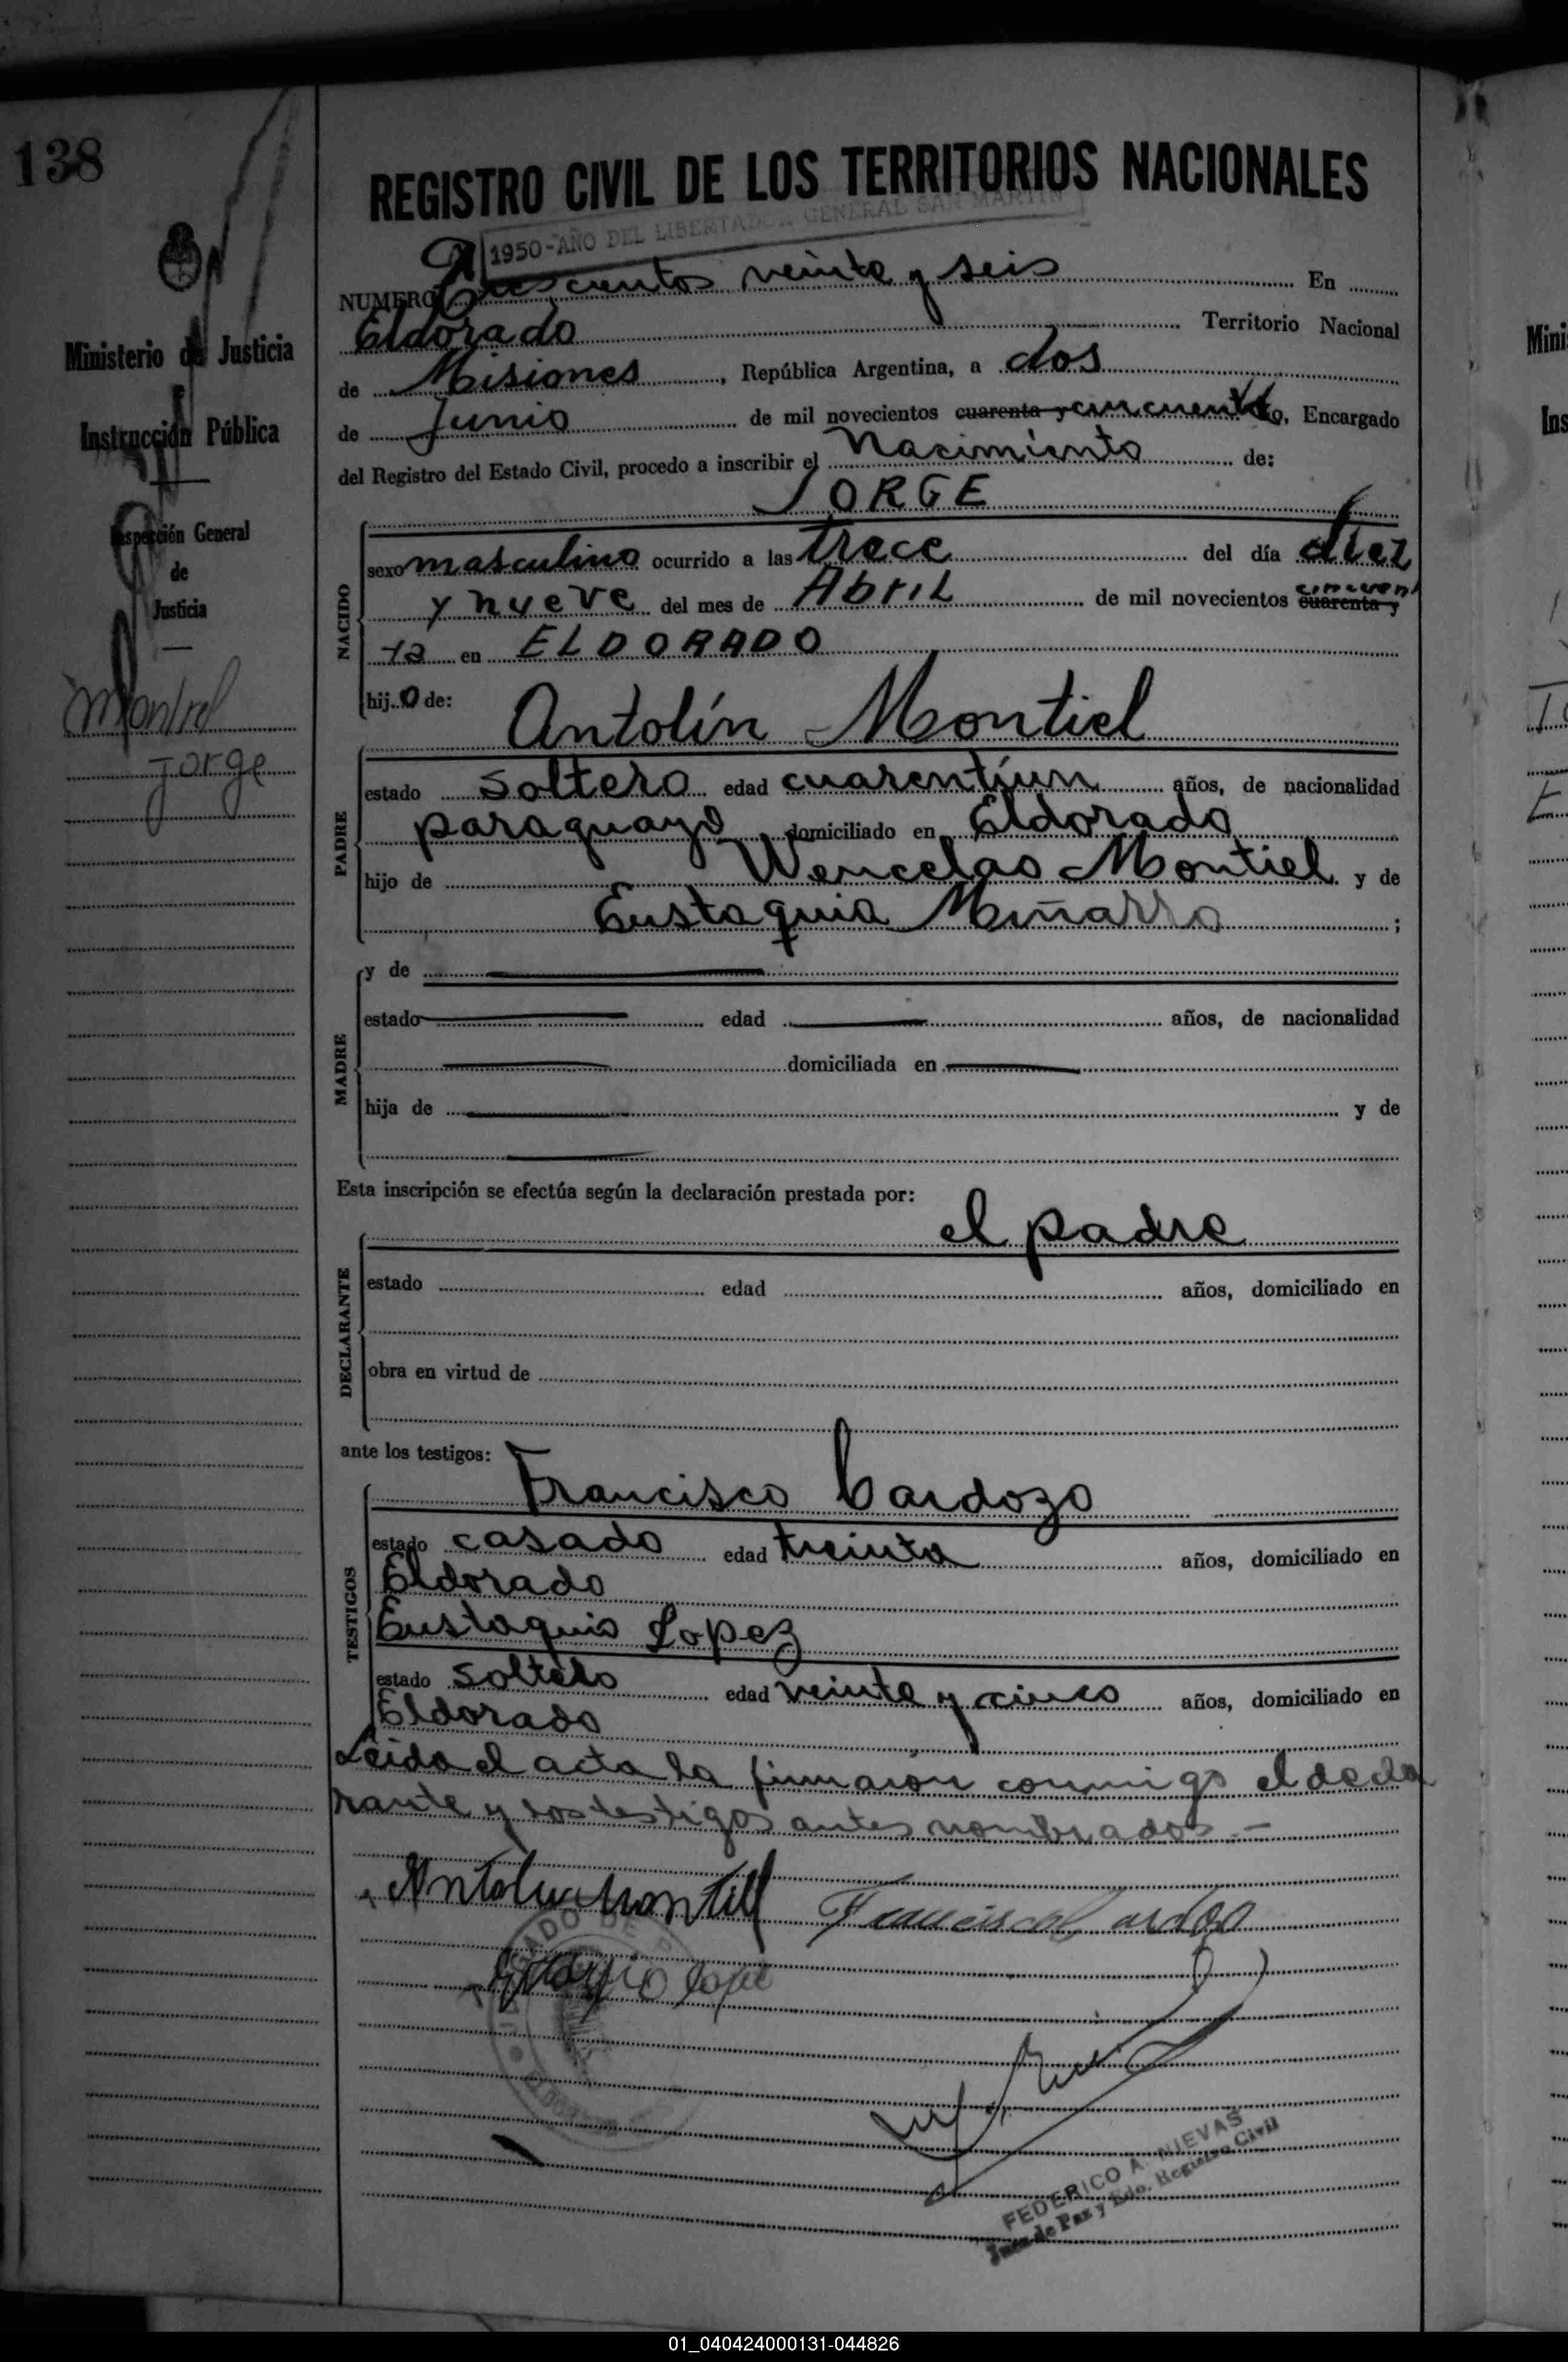 138
REGISTRO CIVIL DE LOS TERRITORIOS NACIONALES
1950-AÑO DEL LIBERTADOR GENERAL SAN MARTIN
NUMERO Trescientos veinte y seis En
Eldorado Territorio Nacional
de Misiones, República Argentina, a dos
de Junio de mil novecientos cuarenta y cincuenta yo, Encargado
del Registro del Estado Civil, procedo a inscribir el Nacimiento de:
JORGE
NACIDO
sexo masculino ocurrido a las trece del día diez
y nueve del mes de Abril de mil novecientos cuarenta y cincuen
ta en ELDORADO
hijo de:
Antolín Montiel
PADRE
estado soltero edad cuarentíun años, de nacionalidad
paraguayo domiciliado en Eldorado
hijo de Wencelao Montiel y de
Eustaquia Miñarro;
MADRE
y de
estado edad años, de nacionalidad
domiciliada en
hija de y de
Esta inscripción se efectúa según la declaración prestada por:
el padre
DECLARANTE
estado edad años, domiciliado en
obra en virtud de
ante los testigos:
Francisco Cardozo
TESTIGOS
estado casado edad treinta años, domiciliado en
Eldorado
Eustaquio Lopez
estado soltero edad veinte y cinco años, domiciliado en
Eldorado
Leida el acta la firmaron conmigo el decla
rante y los testigos antes nombrados.-
Antolin Montiel Francisco Cardozo
Lopez
FEDERICO A. NIEVAS
Juez de Paz y Edo. Registro Civil
Ministerio de Justicia
e
Instrucción Pública
Inspección General
de
Justicia
Montiel
Jorge
01_040424000131-044826